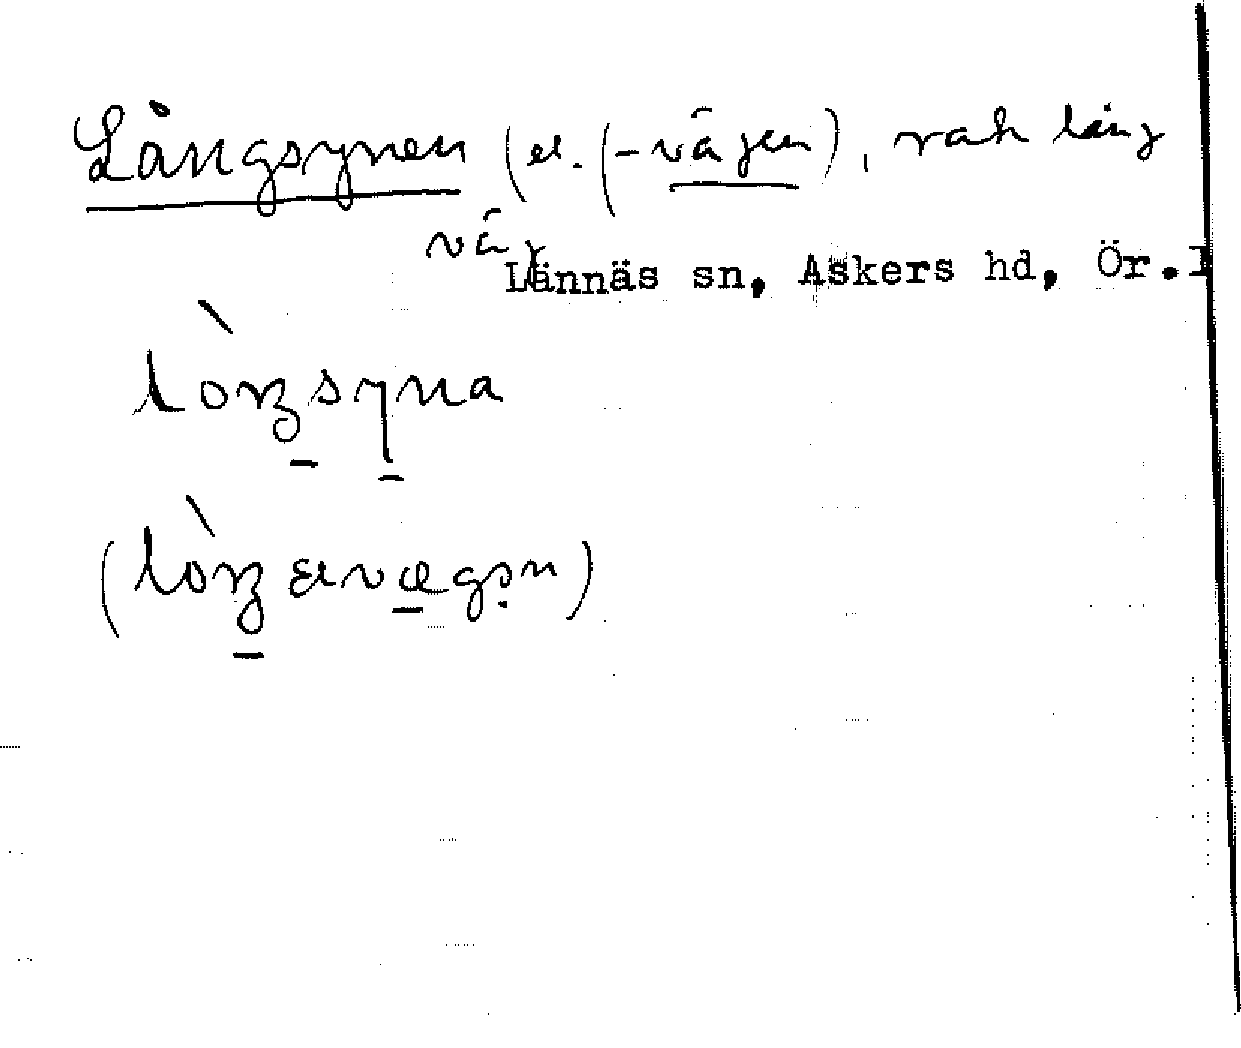 Långsynen (el. (-vägen), rak lång
väg
Lännäs sn, Askers hd, Ör.l
lòŋsyna
(lòŋ el vægən)